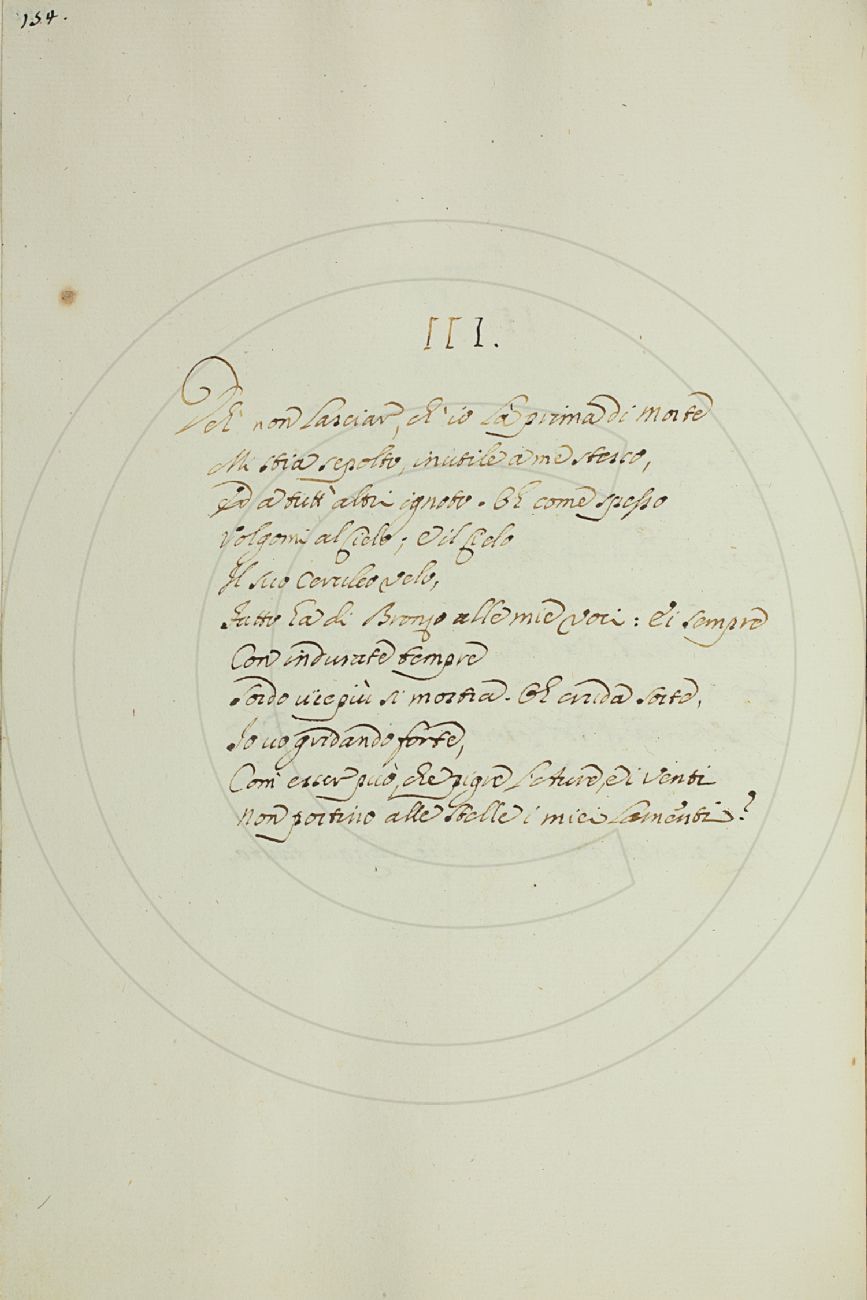 154.
III.
Deh non lasciar, ch'io là prima di Morte
Mi stia sepolto, inutile a me stesso,
Ed a tutt'altri ignoto. Oh come spesso
Volgomi al Cielo; e il Cielo
Il suo Ceruleo velo,
Tutto ha di Bronzo alle mie voci: e i sempre
Con indurate tempre
Sordo vie più si mostra. Oh cruda sorte,
Io vo gridando forte,
Com'esser può, che pigre l'Aure, e i Venti
Non portino alle Stelle i miei lamenti?